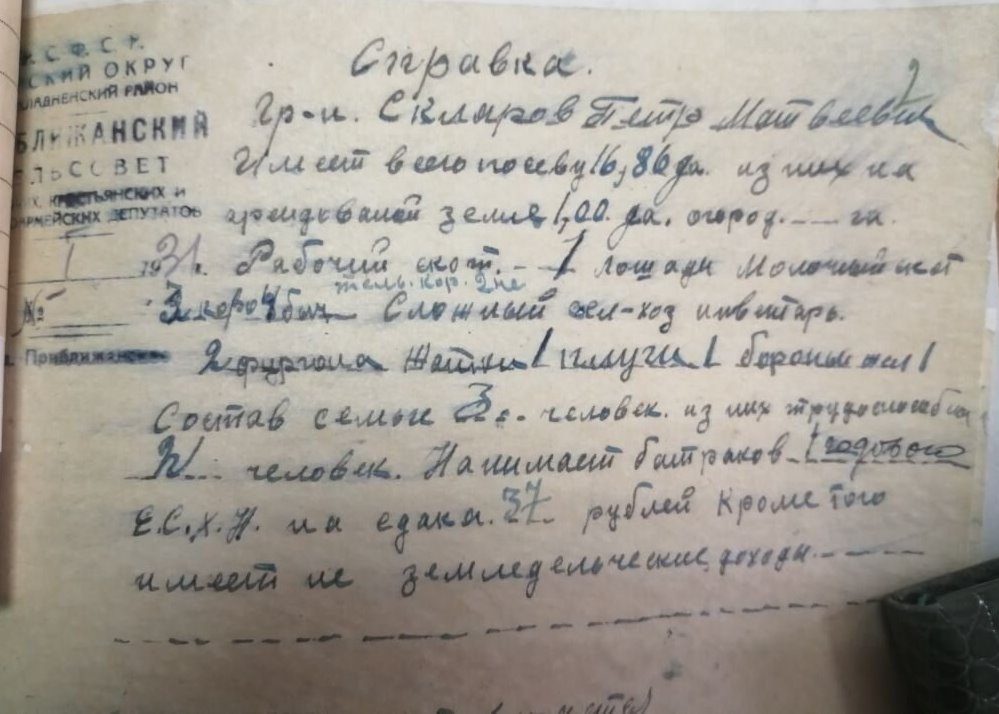 С.Ф.С.Р.
СКИЙ ОКРУГ
ЛАДНЕНСКИЙ РАЙОН
БЛИЖАНСКИЙ
ЛЬСОВЕТ
ИХ, КРЕСТЬЯНСКИХ и
АРМЕЙСКИХ ДЕПУТАТОВ
1931 г.
№
Приближанск
2
Справка.
Гр-н. Скляров Петр Матвеевич
Имеет всего посеву 16,86 га. из них на
арендованой земле 1,00 га. огород. — га.
Рабочий скот. — 1 лошади Молочный скот
тель. кор.
3 коров Сложный сел-хоз инвентарь.
2 фургона Жатки 1 плуги 1 бороны 1
Состав семьи 3. человек. из них трудоспособных
человек. Нанимает батраков 1 годового
Е.С.Х.Н. на едака. 37 рублей Кроме того
имеет не земледельческие доходы. — — — —